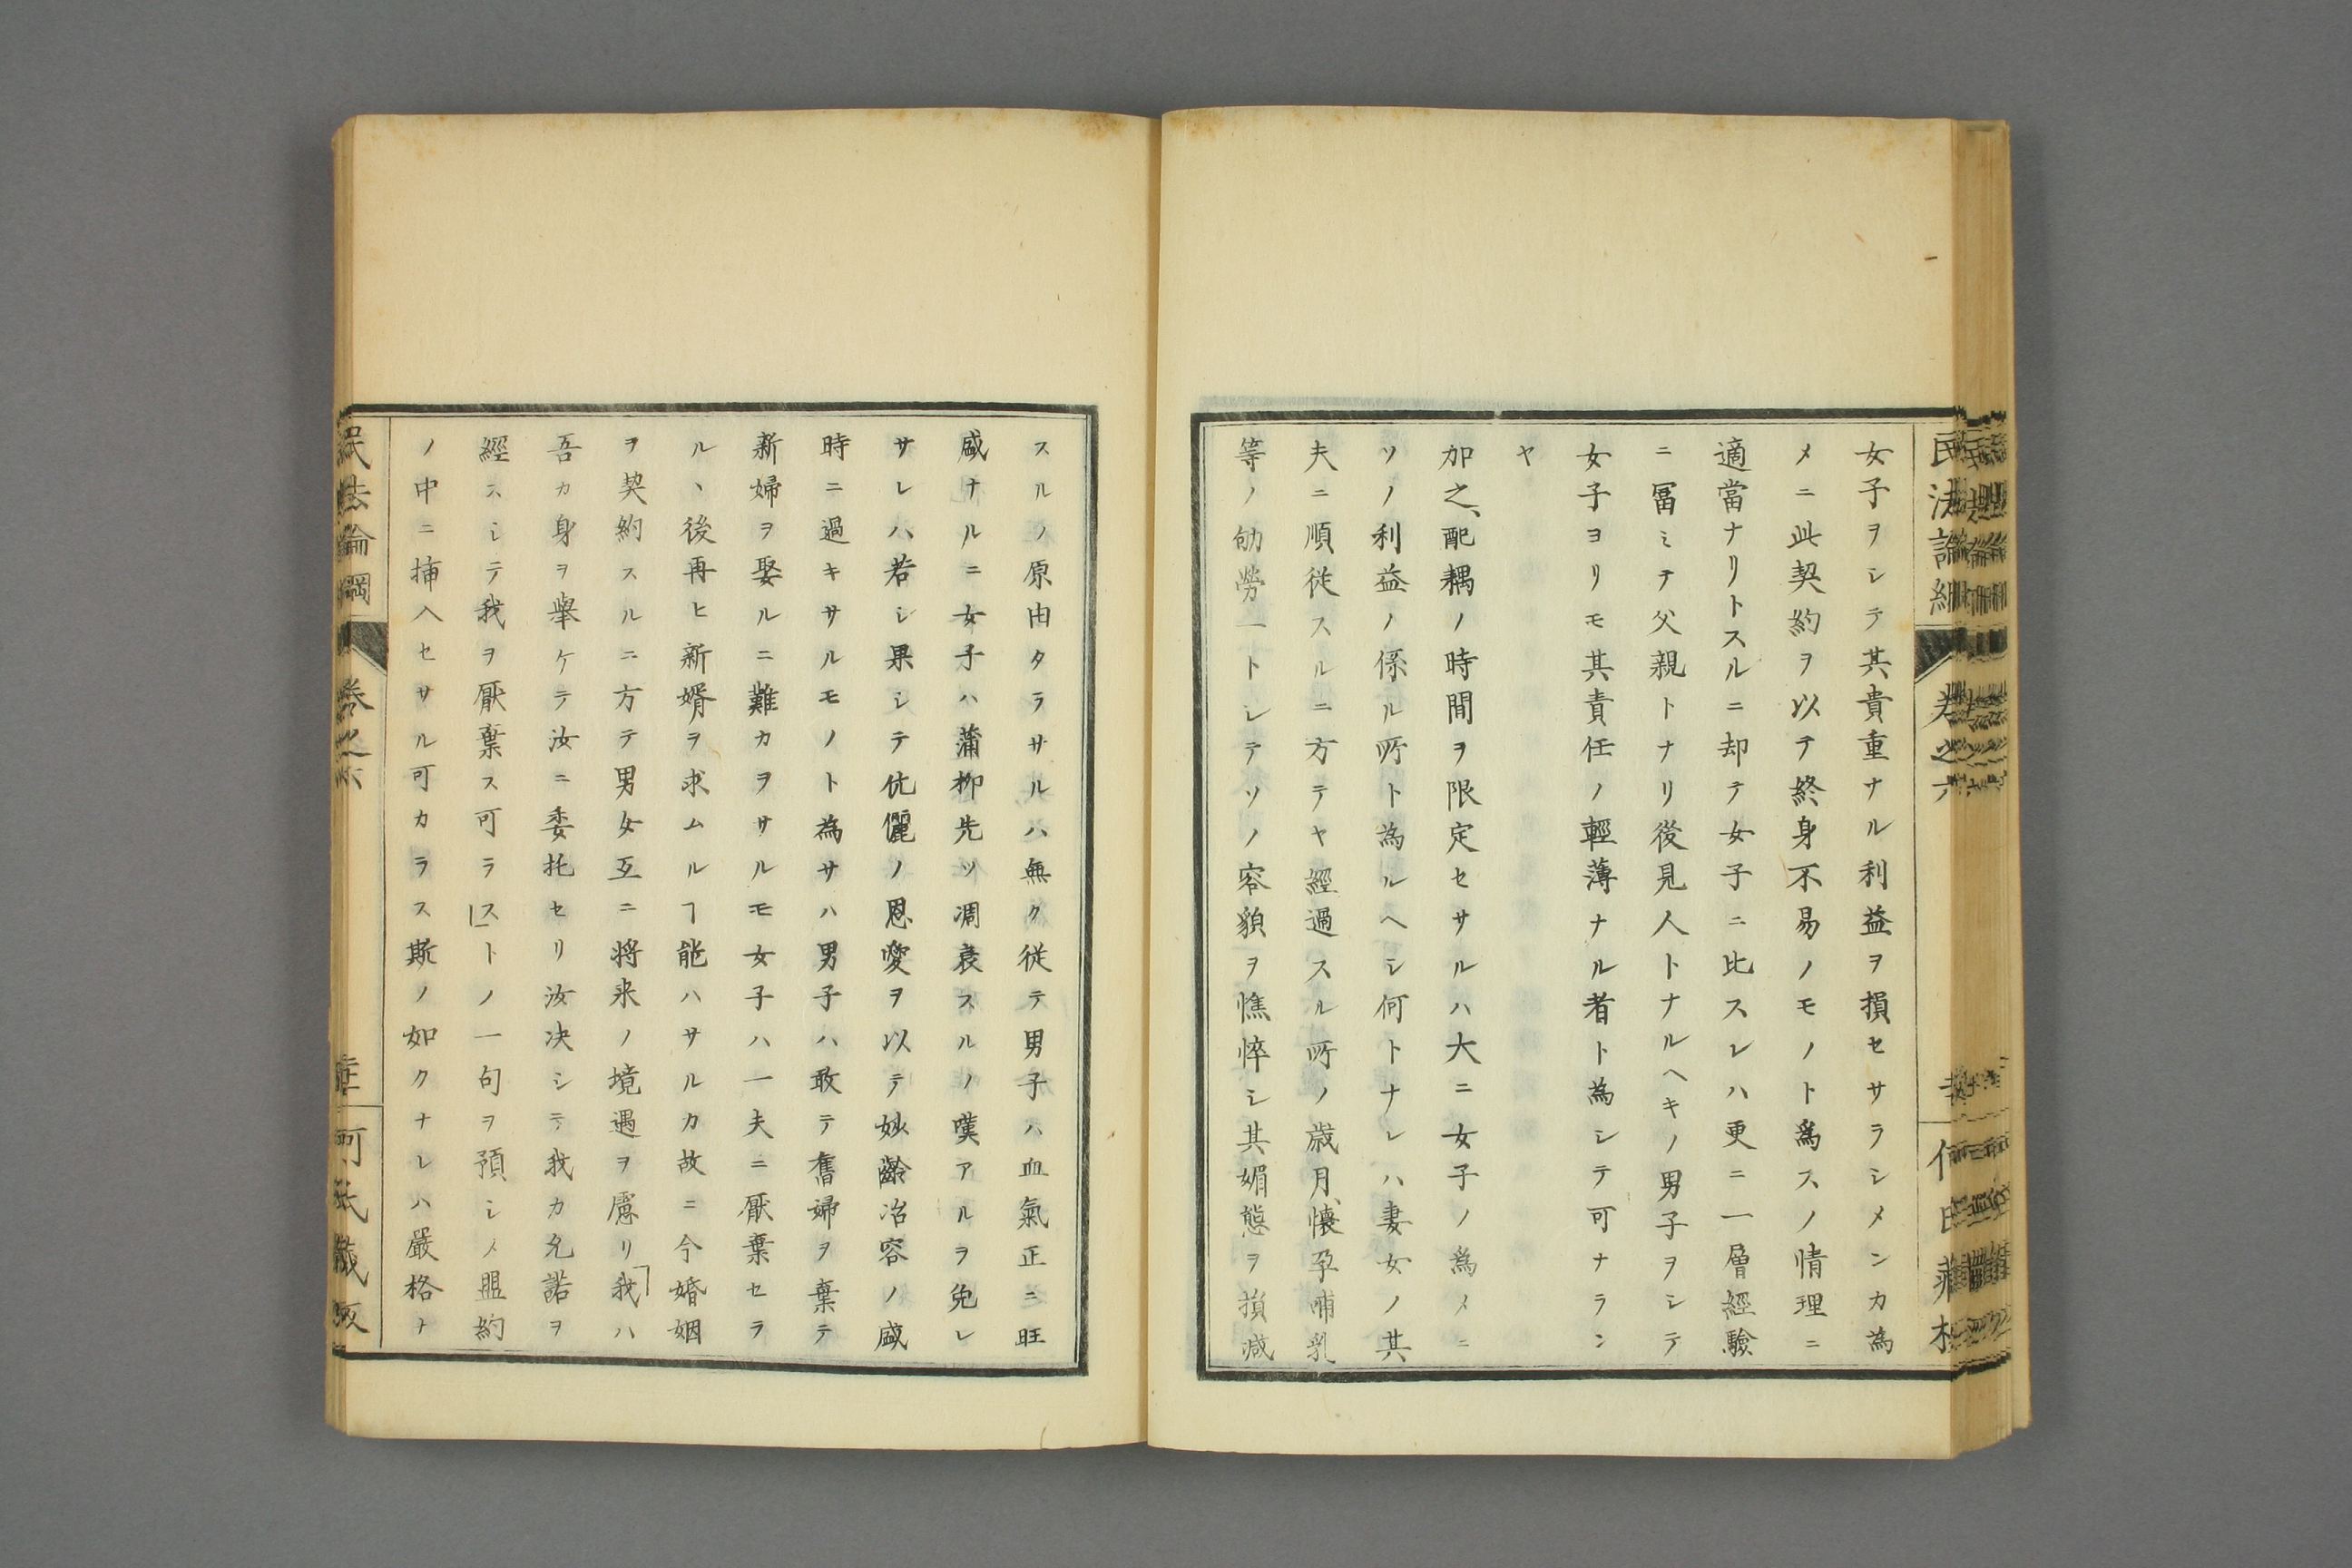 民法論綱
卷之六
女子ヲシテ其貴重ナル利益ヲ損セサラシメンカ為
メニ此契約ヲ以テ終身不易ノモノト為スノ情理ニ
適當ナリトスルニ却テ女子ニ比スレハ更ニ一層經驗
ニ冨ミテ父親トナリ後見人トナルヘキノ男子ヲシテ
女子ヨリモ其責任ノ輕薄ナル者ト為シテ可ナラン
ヤ
加之、配耦ノ時間ヲ限定セサルハ大ニ女子ノ為メニ
ソノ利益ノ係ル所ト為ルヘシ何トナレハ妻女ノ其
夫ニ順從スルニ方テヤ經過スル所ノ歳月、懐孕哺乳
等ノ劬勞一トシテソノ容貌ヲ憔悴シ其媚態ヲ損減
スルノ原由タラサルハ無ク従テ男子ハ血氣正ニ旺
盛ナルニ女子ハ蒲柳先ツ凋衰スルノ嘆アルヲ免レ
サレハ若シ果シテ伉儷ノ恩愛ヲ以テ妙齢冶容ノ盛
時ニ過キサルモノト為サハ男子ハ敢テ舊婦ヲ棄テ
新婦ヲ娶ルニ難カヲサルモ女子ハ一夫ニ厭棄セラ
ルヽ後再ヒ新婿ヲ求ムルヿ能ハサルカ故ニ今婚姻
ヲ契約スルニ方テ男女互ニ将来ノ境遇ヲ慮リ「我ハ
吾カ身ヲ舉ケテ汝ニ委托セリ汝决シテ我カ允諾ヲ
經スシテ我ヲ厭棄ス可ラス」トノ一句ヲ預シメ盟約
ノ中ニ挿入セサル可カラス斯ノ如クナレハ嚴格ナ
民法論綱
卷之六
何氏藏板